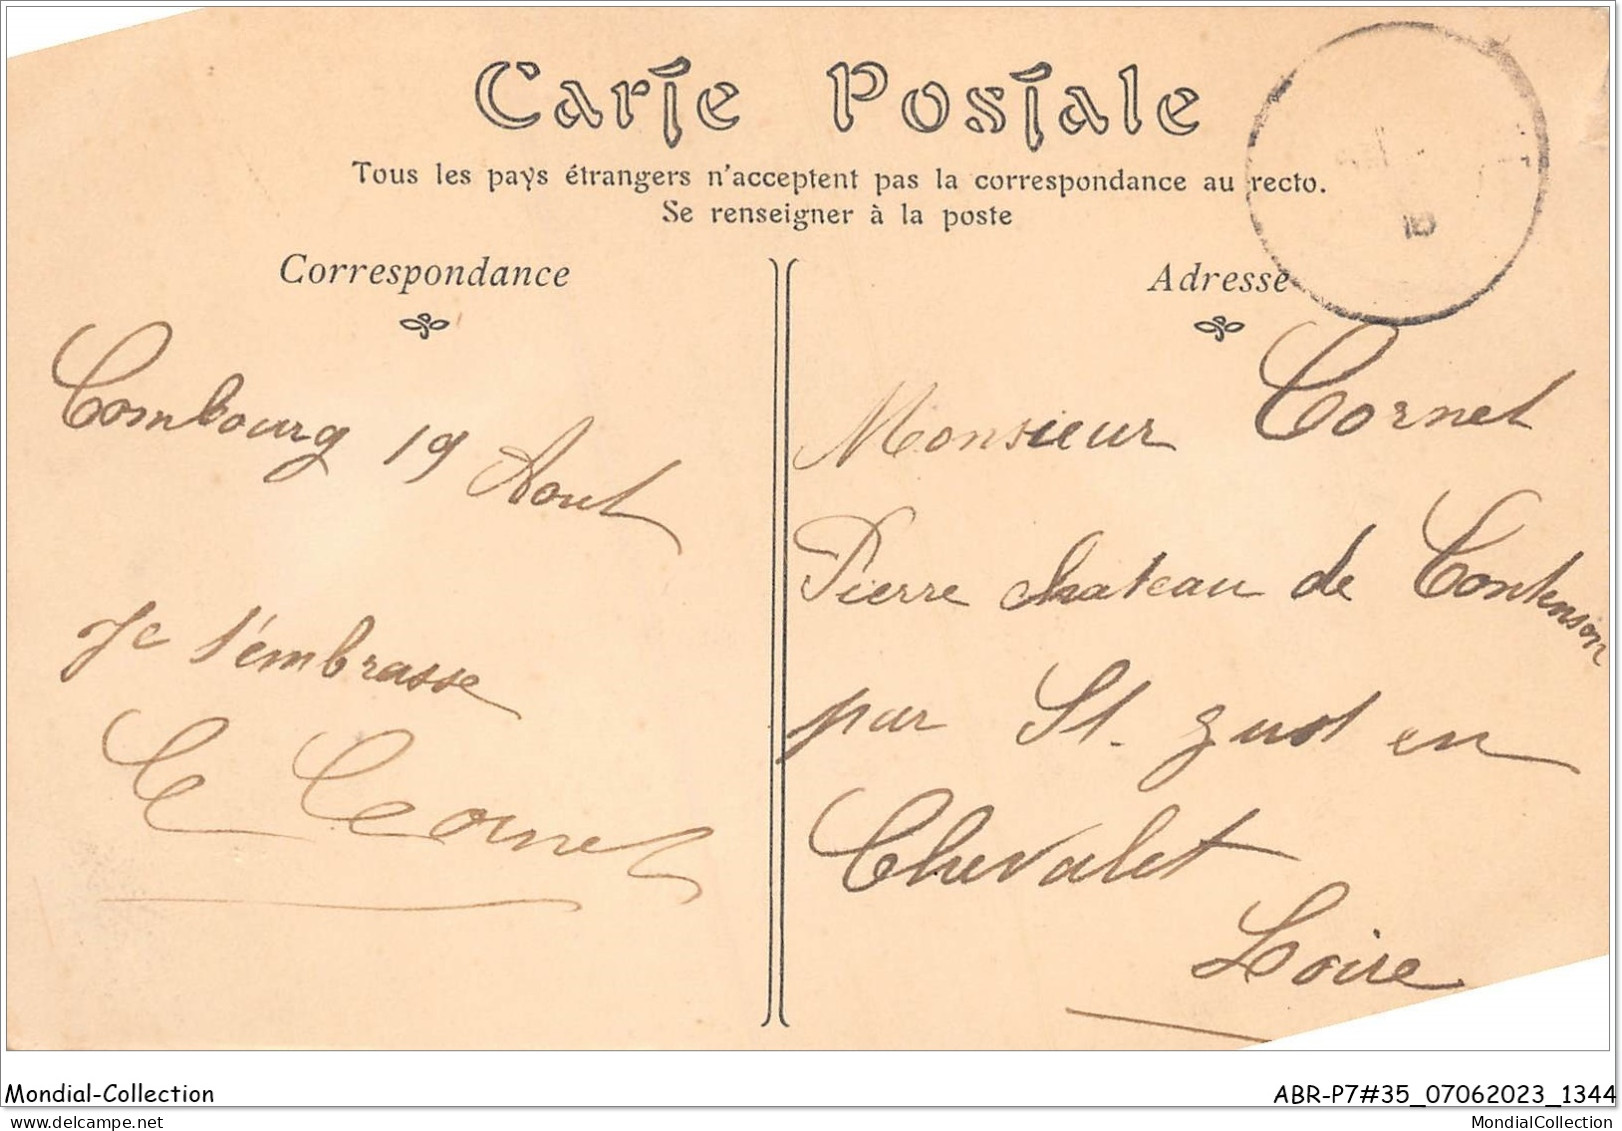 Carte Postale
Tous les pays étrangers n'acceptent pas la correspondance au recto.
Se renseigner à la poste
Correspondance
Combourg 19 Aout
Je t'embrasse
Cornet
Adresse
Monsieur Cornet
Pierre chateau de Contenson
par St. Just en
Chevalet
Loire
Mondial-Collection
ABR-P7#35_07062023_1344
delcampe.net
MondialCollection